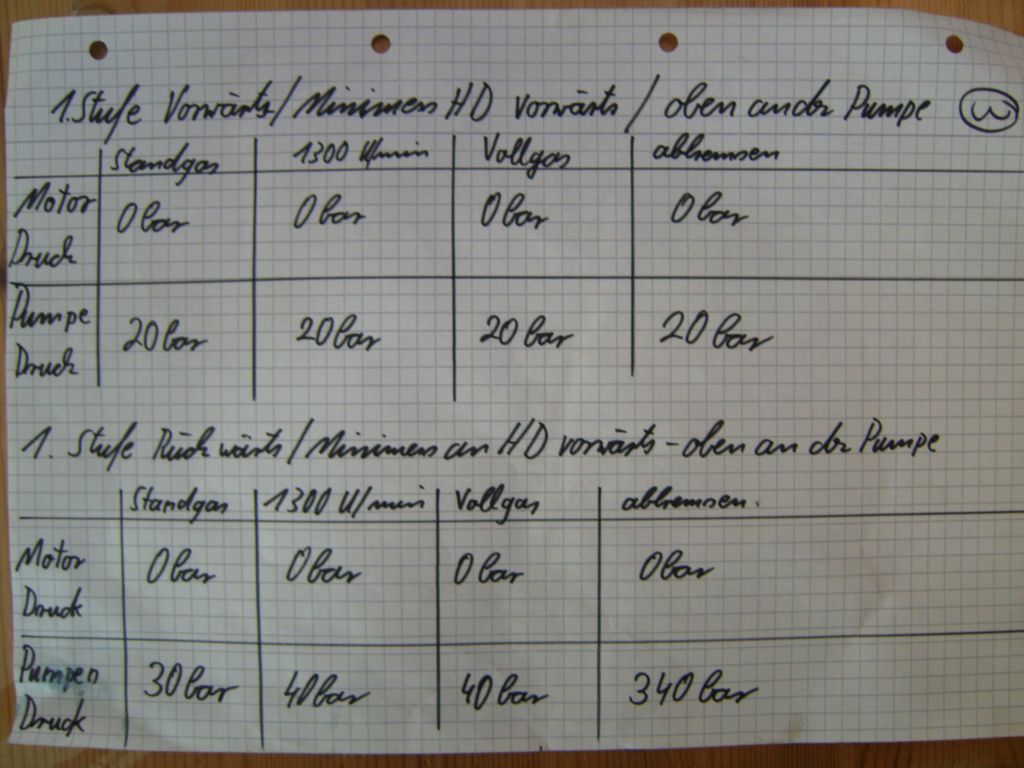 1. Stufe Vorwärts / Minimess HD vorwärts / oben an der Pumpe 3
Standgas 1300 U/min Vollgas abbremsen
Motor Druck 0 bar 0 bar 0 bar 0 bar
Pumpe Druck 20 bar 20 bar 20 bar 20 bar
1. Stufe Rückwärts / Minimess an HD vorwärts - oben an der Pumpe
Standgas 1300 U/min Vollgas abbremsen.
Motor Druck 0 bar 0 bar 0 bar 0 bar
Pumpen Druck 30 bar 40 bar 40 bar 340 bar